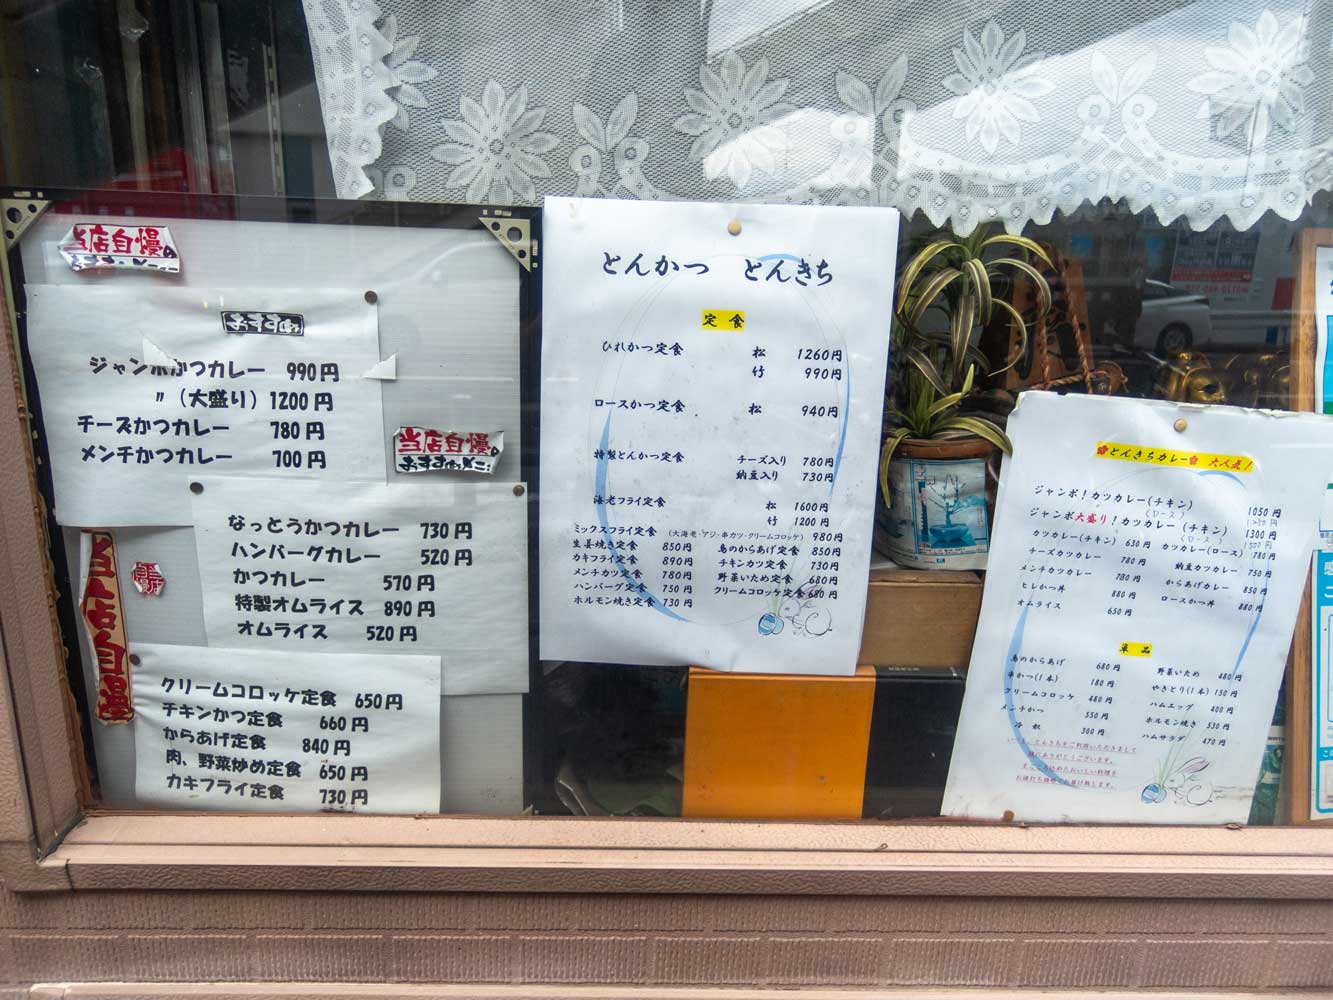 当店自慢の
おすすめ
ジャンボかつカレー 990円
〃(大盛り) 1200円
チーズかつカレー 780円
メンチかつカレー 700円
当店自慢の
なっとうかつカレー 730円
ハンバーグカレー 520円
かつカレー 570円
特製オムライス 890円
オムライス 520円
当店自慢
クリームコロッケ定食 650円
チキンかつ定食 660円
からあげ定食 840円
肉、野菜炒め定食 650円
カキフライ定食 730円
とんかつ とんきち
定食
ひれかつ定食 松 1260円
竹 990円
ロースかつ定食 松 940円
特製とんかつ定食 チーズ入り 780円
納豆入り 730円
海老フライ定食 松 1600円
竹 1200円
ミックスフライ定食 (大海老・アジ・串カツ・クリームコロッケ) 980円
生姜焼き定食 850円 鳥のからあげ定食 850円
カキフライ定食 890円 チキンカツ定食 730円
メンチカツ定食 780円 野菜いため定食 680円
ハンバーグ定食 750円 クリームコロッケ定食 680円
ホルモン焼き定食 730円
とんきちカレー 大人気!
ジャンボ!カツカレー(チキン) 1050円
(ロース)
ジャンボ大盛り!カツカレー(チキン) 1300円
(ロース)
カツカレー(チキン) 630円 カツカレー(ロース) 780円
チーズカツカレー 780円 納豆カツカレー 750円
メンチカツカレー 780円 からあげカレー 850円
ヒレかつ丼 880円 ロースかつ丼 880円
オムライス 650円
単品
鳥のからあげ 680円 野菜いため 480円
串かつ(1本) 180円 やきとり(1本) 150円
クリームコロッケ 480円 ハムエッグ 400円
メンチかつ 550円 ホルモン焼き 530円
冷奴 300円 ハムサラダ 470円
いつも、とんきちをご利用いただきまして
誠にありがとうございます。